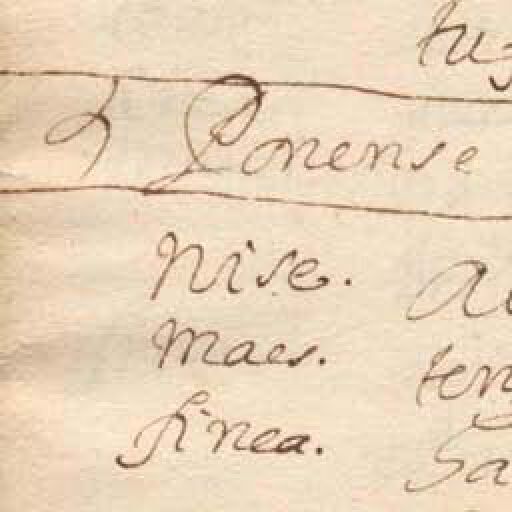 Ponense
Nise.
Maes. ten
finea. Sa